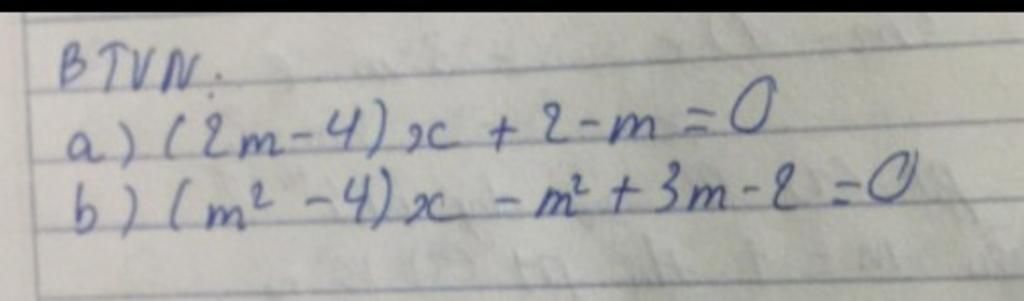 BTVN.
a) (2m-4)x + 2-m = 0
b) (m² - 4)x - m² + 3m - 2 = 0